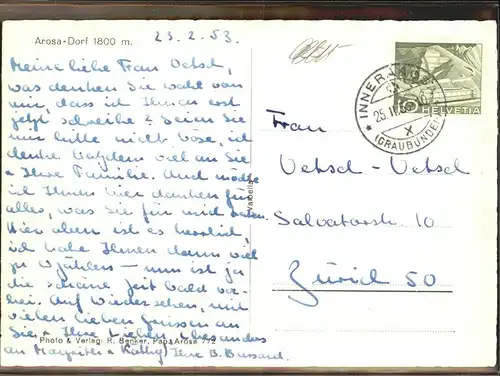 Arosa-Dorf 1800 m.
23. 2. 53.
Meine liebe Frau Oetsel,
was denken Sie wohl von
mir, dass ich Ihnen erst
jetzt schreibe? Seien Sie
mir bitte nicht böse, ich
denke trotzdem viel an Sie
+ Ihre Familie. Auch möchte
ich Ihnen hier danken für
alles, was Sie für mich taten.
Hier oben ist es herrlich,
ich habe Ihnen dann viel
zu erzählen – nun ist ja
die schöne Zeit bald vor-
bei. Auf Wiedersehen, mit
vielen lieben Grüssen an
Sie + Ihre Lieben, besonders
an Margrit + Käthy Ihre B. Bussard.
Photo & Verlag: R. Benker, Pap. Arosa 772
HELVETIA
INNER-
25. II.
(GRAUBÜNDEN)
Frau
Oetsel-Oetsel
Salvatorstr. 10
Zürich 50